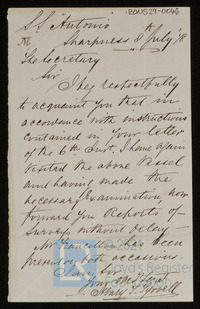 IRONS29-0046
S.S. Antonio
Sharpness 8th July '8
The Secretary
Sir
I beg respectfully
to acquaint you that in
accordance with instructions
contained in your letter
of the 6th Inst, I have again
visited the above Vessel
and having made the
necessary Examination, now
forward you Reports of
Surveys without delay
Mr has been
present on both occasions
I am Sir
Your
Lloyd's Register